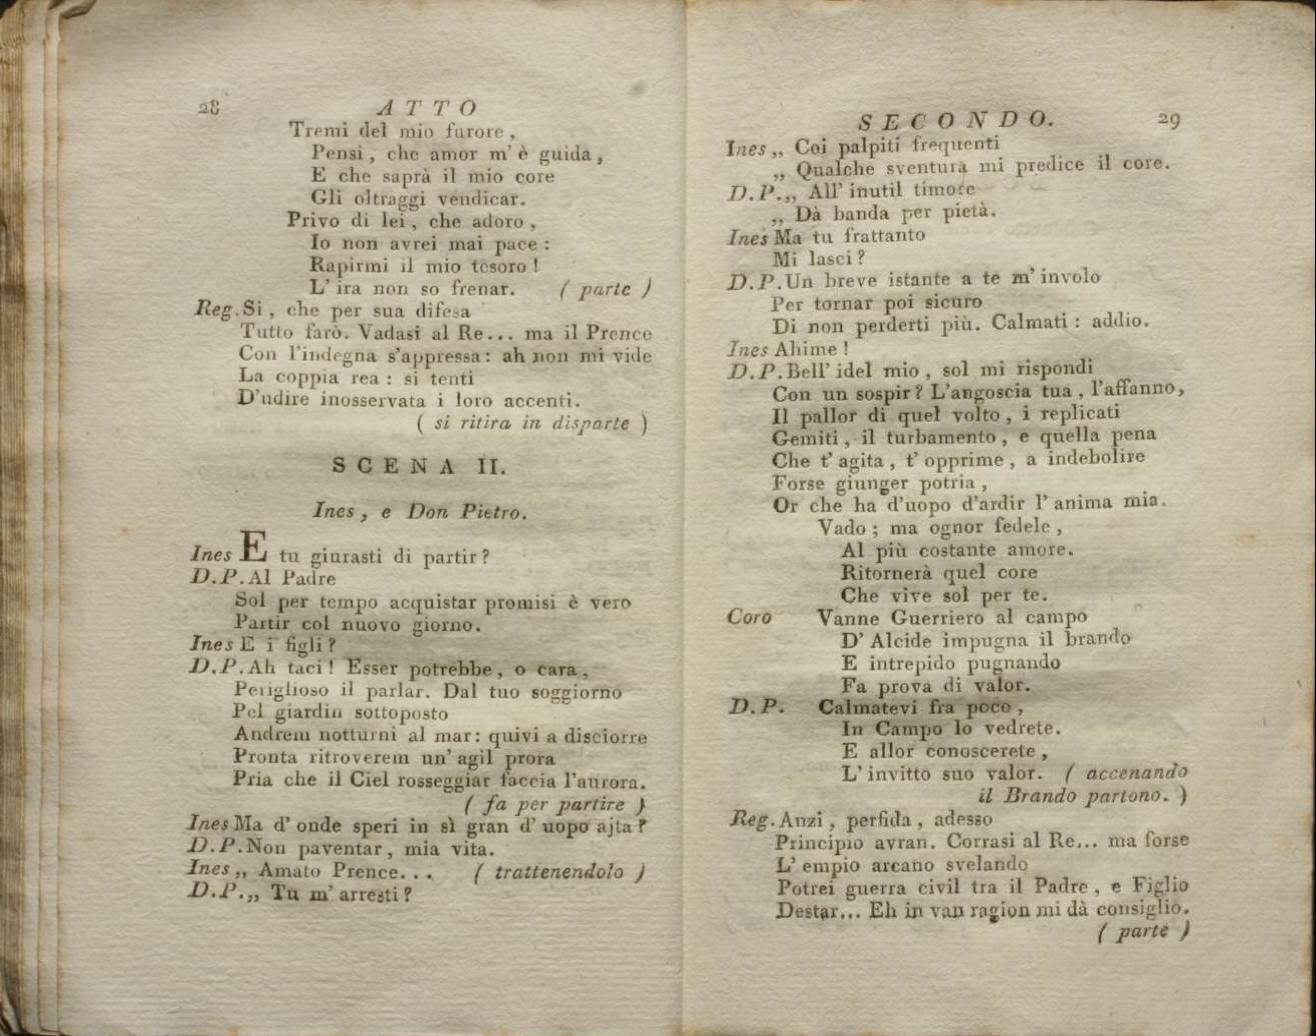 28 ATTO
Tremi del mio furore,
Pensi, che amor m'è guida,
E che saprà il mio core
Gli oltraggi vendicar.
Privo di lei, che adoro,
Io non avrei mai pace:
Rapirmi il mio tesoro!
L'ira non so frenar. (parte)
Reg. Si, che per sua difesa
Tutto farò. Vadasi al Re... ma il Prence
Con l'indegna s'appressa: ah non mi vide
La coppia rea: si tenti
D'udire inosservata i loro accenti.
(si ritira in disparte)
SCENA II.
Ines, e Don Pietro.
Ines E tu giurasti di partir?
D.P. Al Padre
Sol per tempo acquistar promisi è vero
Partir col nuovo giorno.
Ines E i figli?
D.P. Ah taci! Esser potrebbe, o cara,
Periglioso il parlar. Dal tuo soggiorno
Pel giardin sottoposto
Andrem notturni al mar: quivi a disciorre
Pronta ritroverem un'agil prora
Pria che il Ciel rosseggiar faccia l'aurora.
(fa per partire)
Ines Ma d'onde speri in sì gran d'uopo ajta?
D.P. Non paventar, mia vita.
Ines „ Amato Prence... (trattenendolo)
D.P. „ Tu m'arresti?
SECONDO. 29
Ines „ Coi palpiti frequenti
„ Qualche sventura mi predice il core.
D.P. „ All'inutil timore
„ Dà banda per pietà.
Ines Ma tu frattanto
Mi lasci?
D.P. Un breve istante a te m'involo
Per tornar poi sicuro
Di non perderti più. Calmati: addio.
Ines Ahime!
D.P. Bell'idel mio, sol mi rispondi
Con un sospir? L'angoscia tua, l'affanno,
Il pallor di quel volto, i replicati
Gemiti, il turbamento, e quella pena
Che t'agita, t'opprime, a indebolire
Forse giunger potria,
Or che ha d'uopo d'ardir l'anima mia.
Vado; ma ognor fedele,
Al più costante amore.
Ritornerà quel core
Che vive sol per te.
Coro Vanne Guerriero al campo
D'Alcide impugna il brando
E intrepido pugnando
Fa prova di valor.
D.P. Calmatevi fra poco,
In Campo lo vedrete.
E allor conoscerete,
L'invitto suo valor. (accenando
il Brando partono.)
Reg. Anzi, perfida, adesso
Principio avran. Corrasi al Re... ma forse
L'empio arcano svelando
Potrei guerra civil tra il Padre, e Figlio
Destar... Eh in van ragion mi dà consiglio.
(parte)